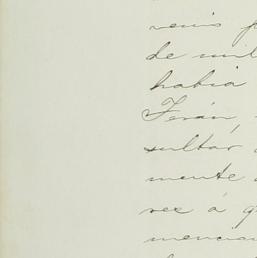 venis p
de mil
habia
Terán,
sultar
mente
vez á q
mencia